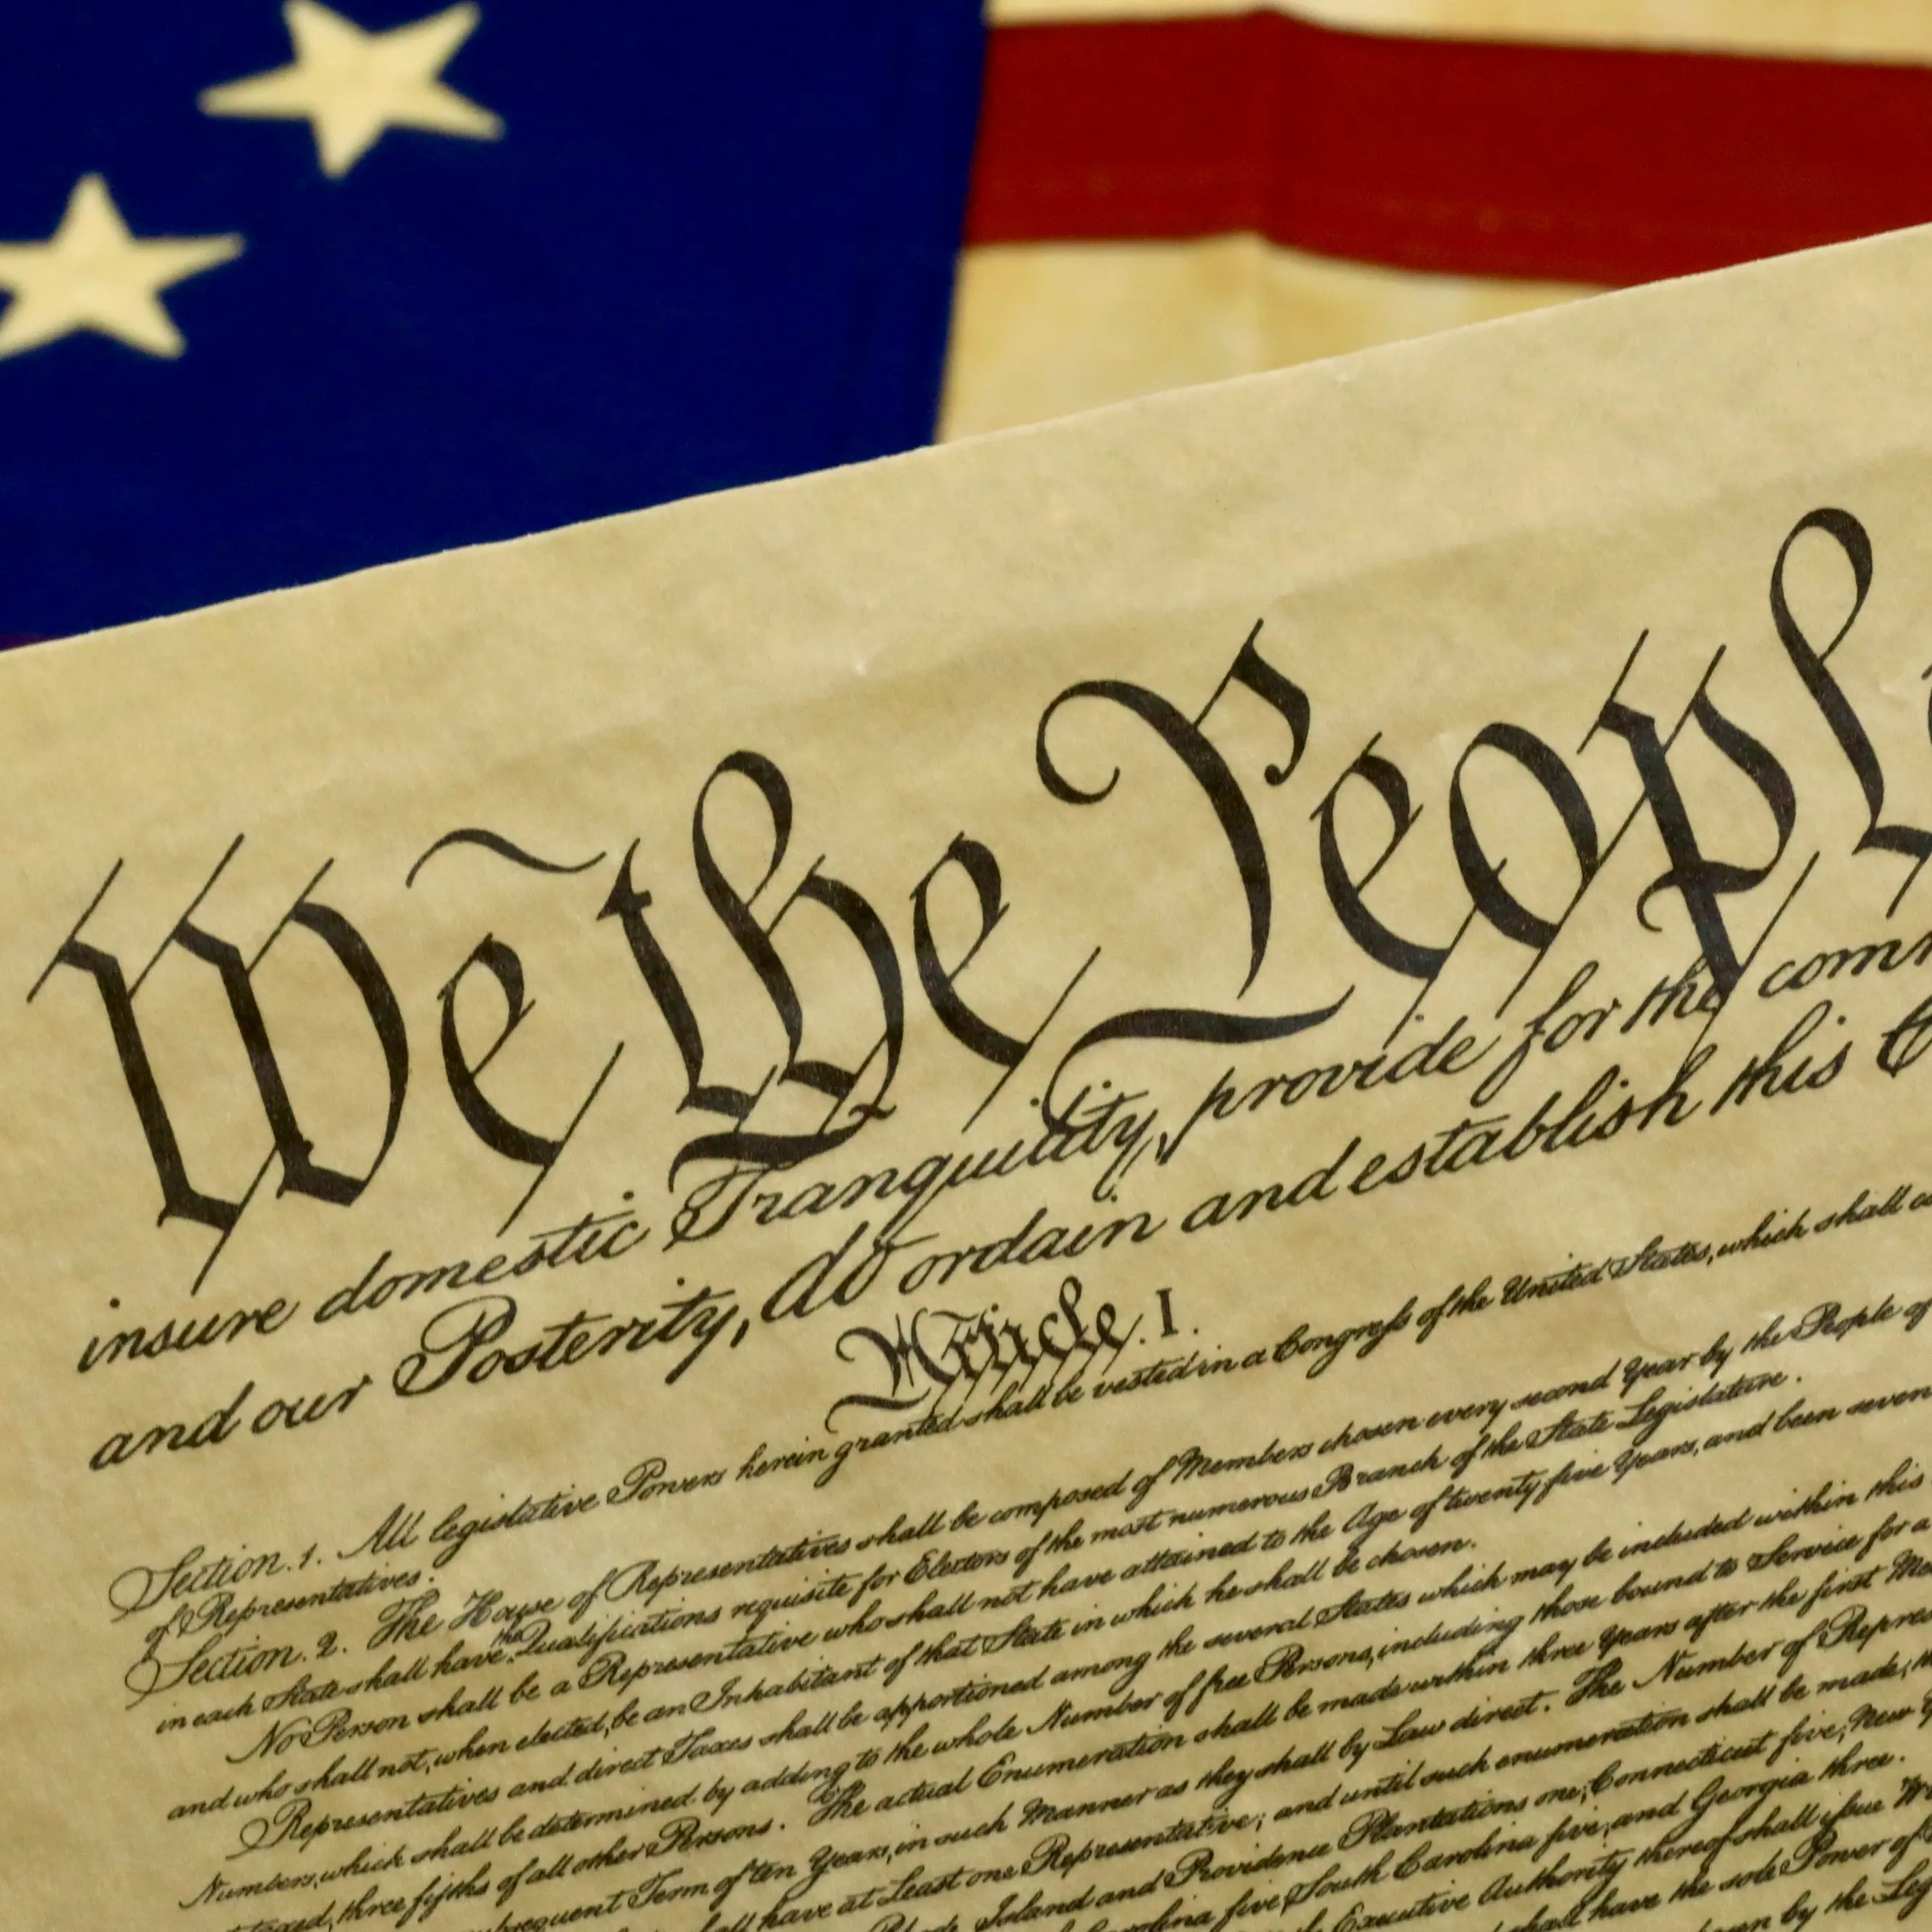 We the People
insure domestic Tranquility, provide for the com
and our Posterity, do ordain and establish this C
Article. I.
Section. 1. All legislative Powers herein granted shall be vested in a Congress of the United States, which shall
of Representatives.
Section. 2. The House of Representatives shall be composed of Members chosen every second Year by the People of
in each State shall have the Qualifications requisite for Electors of the most numerous Branch of the State Legislature.
No Person shall be a Representative who shall not have attained to the Age of twenty five Years, and been seven
and who shall not, when elected, be an Inhabitant of that State in which he shall be chosen.
Representatives and direct Taxes shall be apportioned among the several States which may be included within this
Numbers, which shall be determined by adding to the whole Number of free Persons, including those bound to Service for a
taxed, three fifths of all other Persons. The actual Enumeration shall be made within three Years after the first Mee
subsequent Term of ten Years, in such Manner as they shall by Law direct. The Number of Repres
shall have at Least one Representative; and until such enumeration shall be made, th
Rhode Island and Providence Plantations one, Connecticut five, New Y
Carolina five, South Carolina five, and Georgia three.
Executive Authority thereof shall issue Wr
shall have the sole Power of
by the Leg